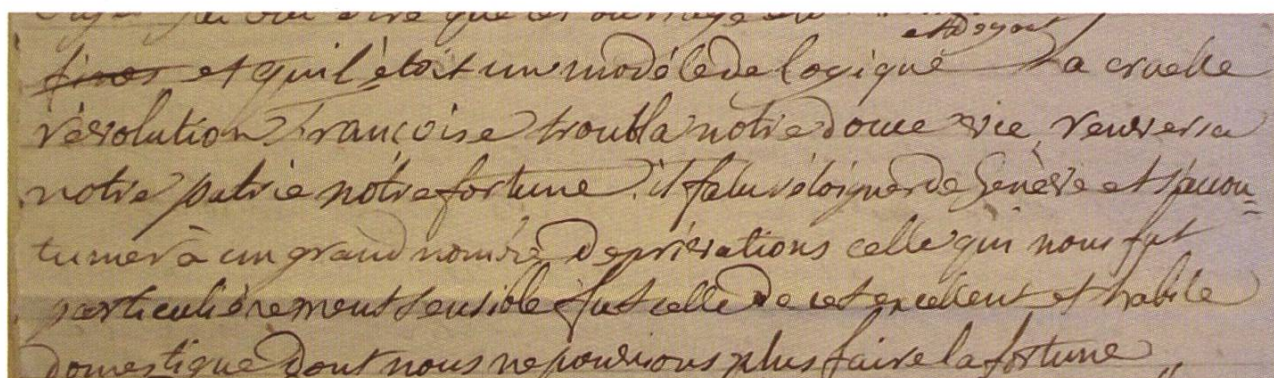 j'ai oui dire que cet ouvrage
et qu'il étoit un modéle de logique La cruelle
révolution françoise troubla notre douce vie, renversa
notre patrie nôtre fortune. il falu s'éloigner de Genève et s'accou=
tumer à un grand nombre de privations celle qui nous fut
particuliérement sensible fut celle de cet excellent et habile
domestique dont nous ne pouvions plus faire la fortune